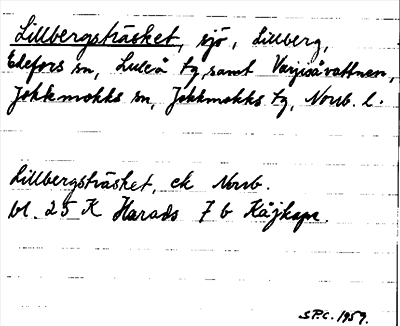 Lillbergsträsket, sjö, Lillberg,
Edefors sn, Luleå tg, samt Varjisåvattnen,
Jokkmokks sn, Jokkmokks tg, Norrb. l.
Lillbergsträsket, ek Norrb.
bl. 25 K Harads 7 b Kåjkape.
S.P.C. 1959.